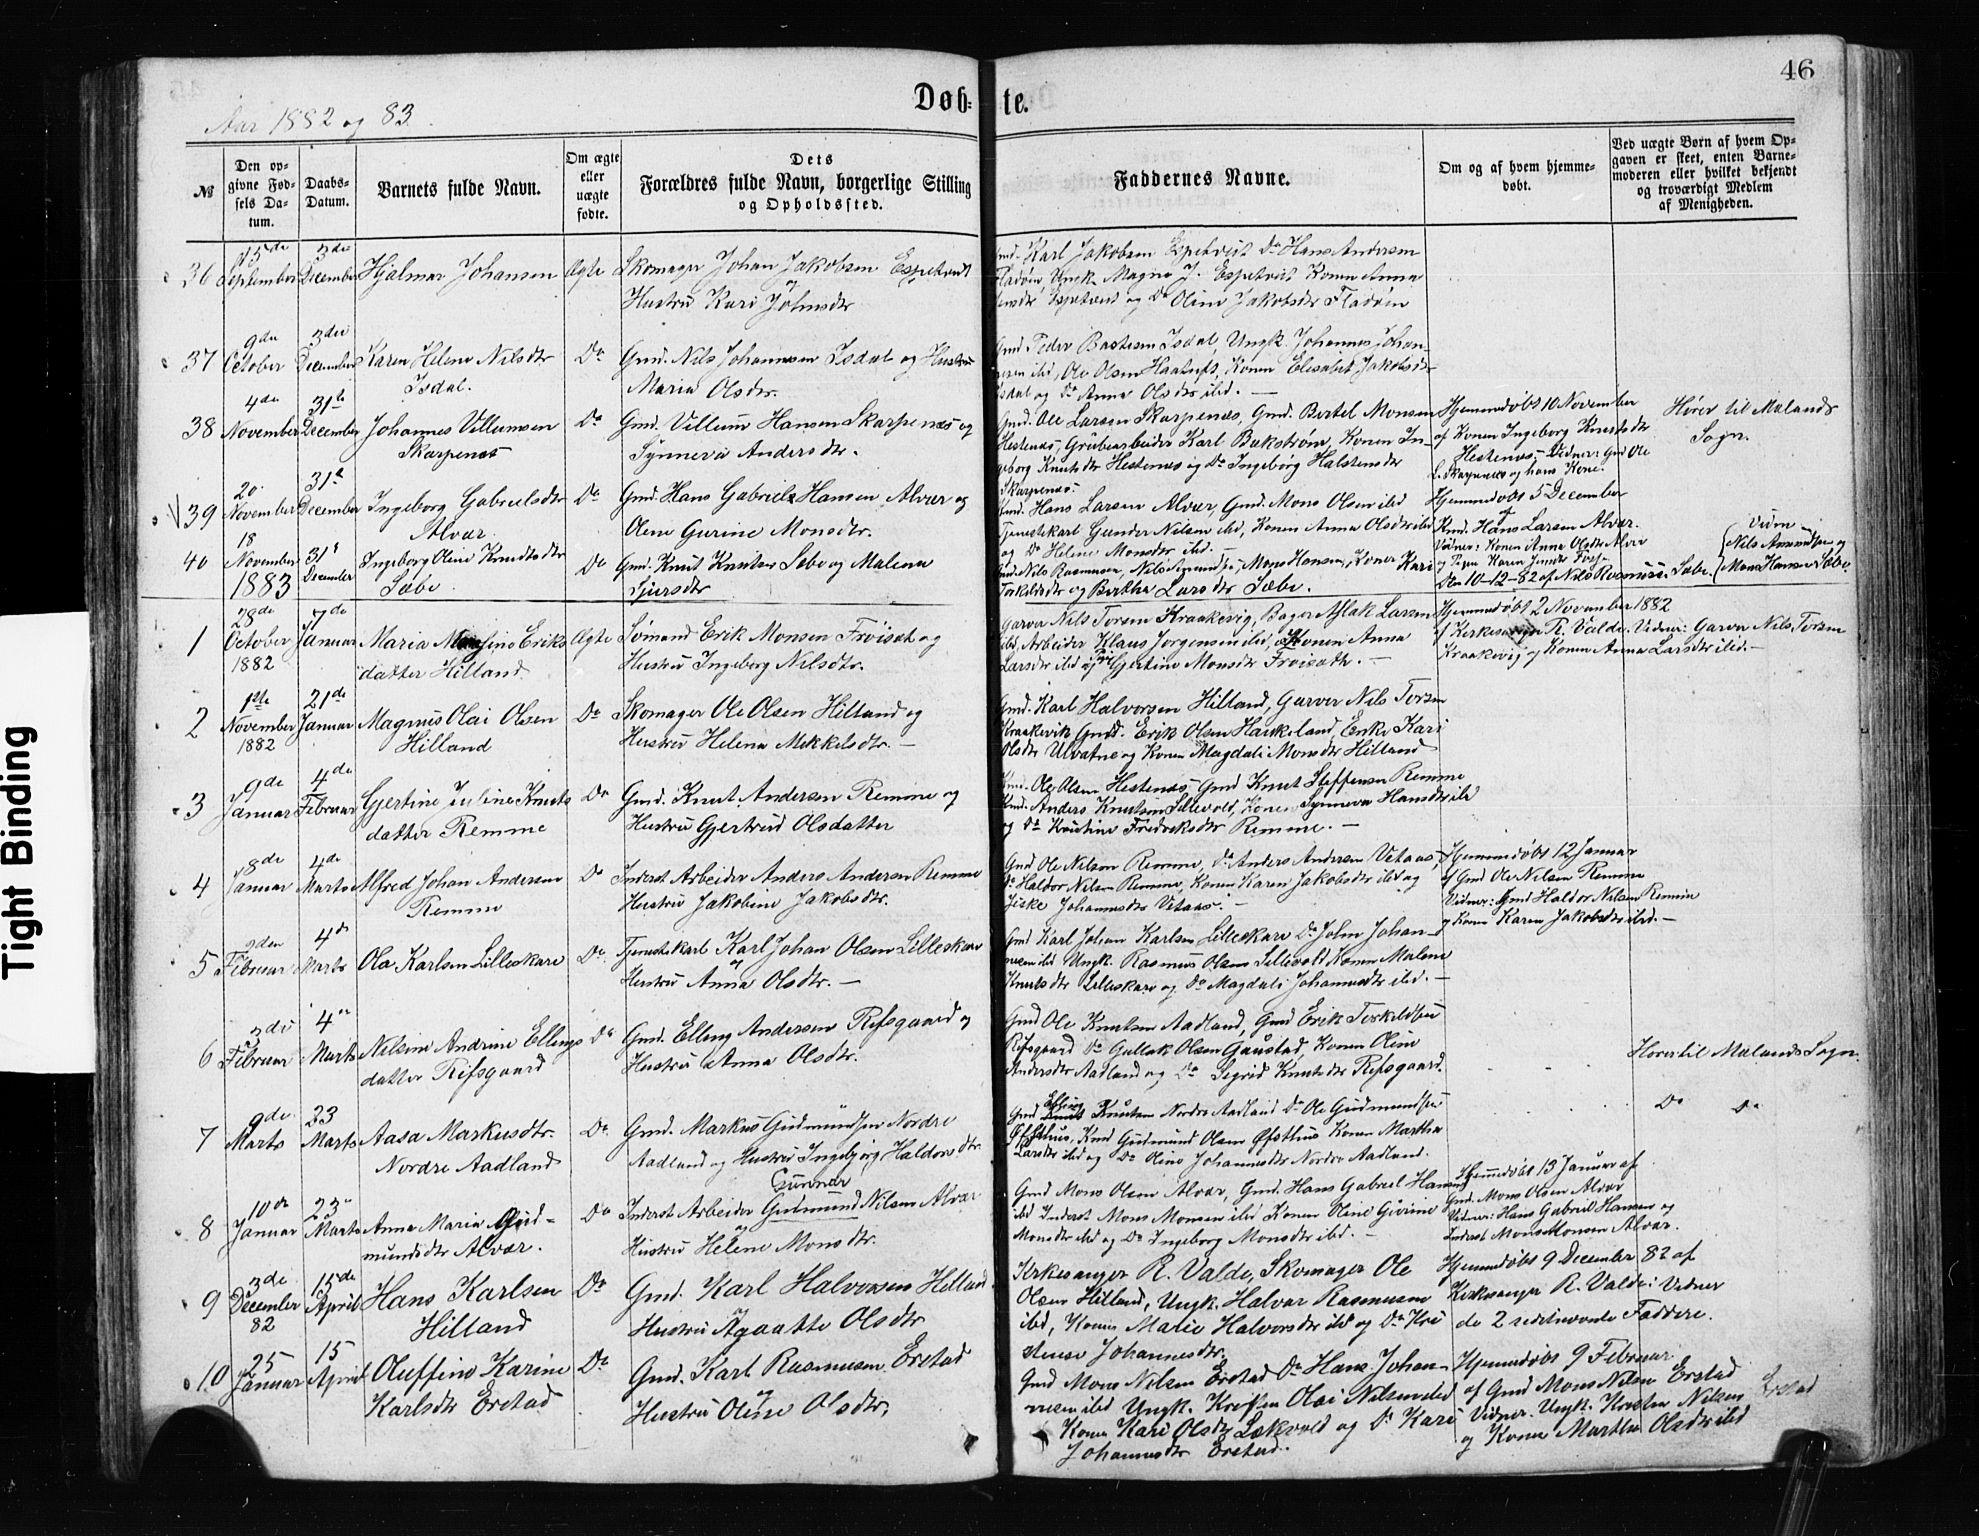 46
Døb-te.
Aar 1882 og 83.
№
Den opgivne Fødsels Datum.
Daabs-Datum.
Barnets fulde Navn.
Om ægte eller uægte fødte.
Dets Forældres fulde Navn, borgerlige Stilling og Opholdssted.
Faddernes Navne.
Om og af hvem hjemmedøbt.
Ved uægte Børn af hvem Opgaven er skeet, enten Barnemoderen eller hvilket bekjendt og troværdigt Medlem af Menigheden.
36 15de September 3die December Hjalmar Johansen Ægte Skomager Johan Jakobsen Espetvedt
og Hustru Kari Johnsdtr
Karl Jakobsen Espetveit Do Hans Andersen
Fladøen, Ungk Magne J. Espetveit Konen Anna
Espetvedt og Do Oline Jakobsdtr Fladøen
37 9de October 3die December Karen Helene Nilsdtr Do Gmd. Nils Johannesen Isdal og Hustru
Isdal. Maria Olsdtr.
Gmd Peder Bastesen Isdal, Ungk. Johannes Johan-
nesen ibid, Ole Olsen Haatuft, Konen Elisabet Jakobsdtr
Isdal og Do Anna Olsdtr ibid. —
38 4de November 31te December Johannes Villumsen Do Gmd. Villum Hansen Skarpenæs og
Skarpenæs Synneva Andersdtr.
Gmd. Ole Larsen Skarpenæs, Gmd. Bertel Monsen
Hestenæs, Grubearbeider Karl Bakstrøm, Konen In-
geborg Knutsdtr Hestenæs og Do Ingeborg Halstensdtr
Skarpenæs.
Hjemmedøbt 10 November
af Konen Ingeborg Knutsdtr
Hestenæs. Vidner: Gmd Ole
L. Skarpenæs og hans Kone.
Hører til Mælands
Sogn.
39 20 November 31te December Ingeborg Gabrielsdtr Do Gmd. Hans Gabriel Hansen Alvær og
Alvær. Olene Gurine Monsdtr.
Gmd. Hans Larsen Alvær, Gmd. Mons Olsen ibid
Tjenestekarl Gunder Nilsen ibid, Konen Anna Olsdtr ibid
og Do Helene Monsdtr ibid.
Hjemmedøbt 5 December
af Gmd. Hans Larsen Alvær.
Vidner: Konen Anna Olsdtr Alvær
og Pigen Karen
40 18 November 31te December Ingeborg Oline Knudtsdtr Do Gmd. Knut Knutsen Sæbe og Malena
Sæbe Sjursdtr
Gmd. Nils Rasmusen, Nils Amundsen, Mons Hansen, Konen Kari
Torkelsdtr og Bertha Larsdtr Sæbe.
Den 10-12-82 af Nils Rasmusen Sæbe.
Vidner
Nils Amundsen og
Mons Hansen Sæbe.
1883
1 28de October 1882 7de Januar Maria Monsine Eriks Ægte Sømand Erik Monsen Froisæt og
datter Hilland Hustru Ingeborg Nilsdtr.
Garver Nils Torsen Kraakevig, Bager Aslak Larsen
ibid, Arbeider Klaus Jørgensen ibid, Konen Anna
Larsdtr ibid og Gjertine Monsdtr Froisæth. —
Hjemmedøbt 2 November 1882
af Kirkesanger R. Valde. Vidner: Garver Nils Torsen
Kraakevig og Konen Anna Larsdtr ibid. —
2 1ste November 1882 21de Januar Magnus Olai Olsen Do Skomager Ole Olsen Hilland og
Hilland Hustru Helena Mikkelsdtr. —
Gmd. Karl Halvorsen Hilland, Garver Nils Torsen
Kraakevik Gmd. Erik Olsen Haukeland, Enke Kari
Olsdtr Ulvatne og Konen Magdali Monsdtr Hilland
3 9de Januar 4de Februar Gjertine Juline Knuts Do Gmd. Knut Andersen Remme og
datter Remme Hustru Gjertrud Olsdatter
Gmd. Ole Olsen Hestenæs, Gmd Knut Steffensen Remme
Gmd. Anders Knutsen Lillevold, Konen Synneva Hansdtr ibid
og Do Kristine Fredriksdtr Remme. —
4 8de Januar 4de Marts Alfred Johan Andersen Do Inderst Arbeider Anders Andersen Remme
Remme Hustru Jakobine Jakobsdtr.
Gmd Ole Nilsen Remme, Do Anders Andersen Vetaas,
Do Haldor Nilsen Remme, Konen Karen Jakobsdtr ibid og
Johannesdtr Vetaas. —
Hjemmedøbt 12 Januar
af Gmd Ole Nilsen Remme
Vidner: Gmd Haldor Nilsen Remme
og Konen Karen Jakobsdtr ibid. —
5 9den Februar 4de Marts Ola Karlsen Lilleskare Do Tjenestekarl Karl Johan Olsen Lilleskare
og Hustru Anna Olsdtr. —
Gmd Karl Johan Karlsen Lilleskare Do John Johan-
nesen ibid Ungk. Rasmus Olsen Lillevold Konen Malene
Knutsdtr Lilleskare og Do Magdali Johannesdtr ibid. —
6 3die Februar 4de Marts Nilsine Andrine Ellings Do Gmd. Elling Andersen Refsgaard og
datter Refsgaard Hustru Anna Olsdtr.
Gmd Ole Knutsen Aadland, Gmd Erik Torkeldsen
Refsgaard Do Gullak Olsen Gaustad, Konen Oline
Andersdtr Aadland og Do Sigrid Knutsdtr Refsgaard.
Hører til Mælands Sogn.
7 9de Marts 23 Marts Aasa Markusdtr. Do Gmd. Markus Gudmundsen Nordre
Nordre Aadland Aadland og Hustru Ingebjørg Haldorsdtr.
Gmd Elling Knutsen Nordre Aadland Do Ole Gudmundsen
Øfsthus, Gmd Gudmund Olsen Øfsthus Konen Martha
Larsdtr ibid og Do Oline Johannesdtr Nordre Aadland.
Do Do
8 10de Januar 23de Marts Anna Maria Gud- Do Inderst Arbeider Gudmund Nilsen Alvær
Gunnar
mundsdtr Alvær. og Hustru Helene Monsdtr.
Gmd Mons Olsen Alvær, Gmd. Hans Gabriel Hansen
ibid Inderst Mons Monsen ibid Konen Oline Gurine
Monsdtr ibid og Do Ingeborg Monsdtr ibid. —
Hjemmedøbt 13 Januar af
Gmd. Mons Olsen Alvær
Vidner: Hans Gabriel Hansen og
Inderst Mons Monsen Alvær.
9 3de December 82 15de April Hans Karlsen Do Gmd. Karl Halvorsen Hilland
Hilland og Hustru Agaatte Olsdtr
Kirkesanger R. Valde, Skomager Ole
Olsen Hilland, Ungk. Halvar Rasmusen
ibid, Konen Malie Halvorsdtr ibid og Do Kri
stense Johannesdtr.
Hjemmedøbt 9 December 82 af
Kirkesanger R. Valde: Vidner
de 2 sidstnævnte Faddere.
10 25 Januar 15 April Oluffine Karine Do Gmd. Karl Rasmusen Erstad
Karlsdtr Erstad og Hustru Oline Olsdtr.
Gmd Mons Nilsen Erstad Do Hans Johan-
nesen ibid Ungk. Kristen Olai Nilsen ibid
Konen Kari Olsdtr Lekvold og Do Kari
Johannesdtr Erstad.
Hjemmedøbt 9 Februar
af Gmd Mons Nilsen Erstad
Vidner. Ungk. Kristen Nilsen Erstad
og Konen Martha Olsdtr ibid
Tight Binding